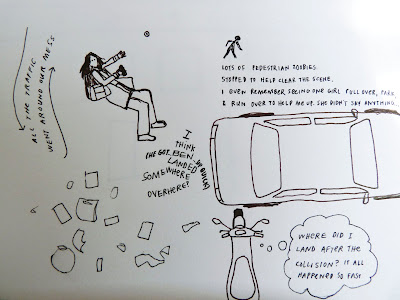 ALL THE TRAFFIC
WENT AROUND OUR MESS
LOTS OF PEDESTRIAN ZOOBIES
STOPPED TO HELP CLEAR THE SCENE.
I EVEN REMEMBER SEEING ONE GIRL PULL OVER, PARK,
& RUN OVER TO HELP ME UP. SHE DIDN'T SAY ANYTHING.
I
THINK
BEN
LANDED
SOMEWHERE
OVERHERE?
WHERE DID I
LAND AFTER THE
COLLISION? IT ALL
HAPPENED SO FAST.